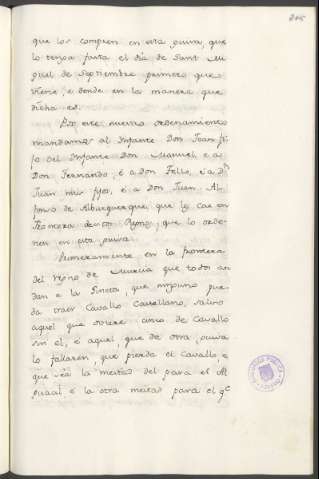 205
que los compren en esta guisa, que
lo tenga fasta el dia de Sant Mi
guel de Septiembre primero que
viene, e donde en la manera que
dicha es.
Por este nuestro ordenamiento
mandamos al Infante Don Joan fi
jo del Infante Don Manuel, e a
Don Fernando, e a Don Tello, e a Dn
Juan mis fijos, e a Don Juan Al
fonso de Alburquerque, que
en esta guisa
Primeramente en la frontera
del regno de Murcia que todos an
dan a la Gineta, que ninguno pue
da traer Cavallo Castellano, salvo
aquel que oviere cinco de Cavallo
sin el, e aquel, que de otra guisa
lo fallaren, que pierda el Cavallo, e
que sea la meitad del para el Al
guacil e la otra meitad para el qe